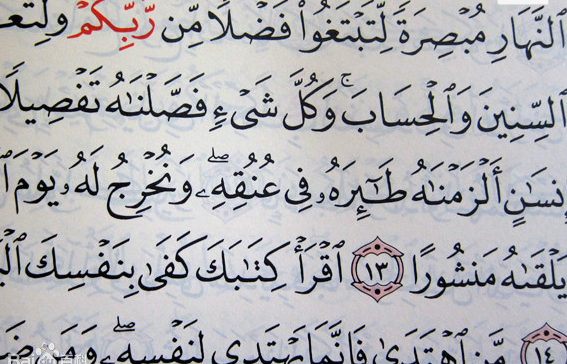 ٱلنَّهَارِ مُبْصِرَةً لِّتَبْتَغُوا۟ فَضْلًا مِّن رَّبِّكُمْ
ٱلسِّنِينَ وَٱلْحِسَابَ ۚ وَكُلَّ شَىْءٍ فَصَّلْنَـٰهُ تَفْصِيلًا
إِنسَـٰنٍ أَلْزَمْنَـٰهُ طَـٰٓئِرَهُۥ فِى عُنُقِهِۦ ۖ وَنُخْرِجُ لَهُۥ يَوْمَ
يَلْقَىٰهُ مَنشُورًا ١٣ ٱقْرَأْ كِتَـٰبَكَ كَفَىٰ بِنَفْسِكَ
١٤ مَّنِ ٱهْتَدَىٰ فَإِنَّمَا يَهْتَدِى لِنَفْسِهِۦ ۖ وَمَن
Baidu 百科